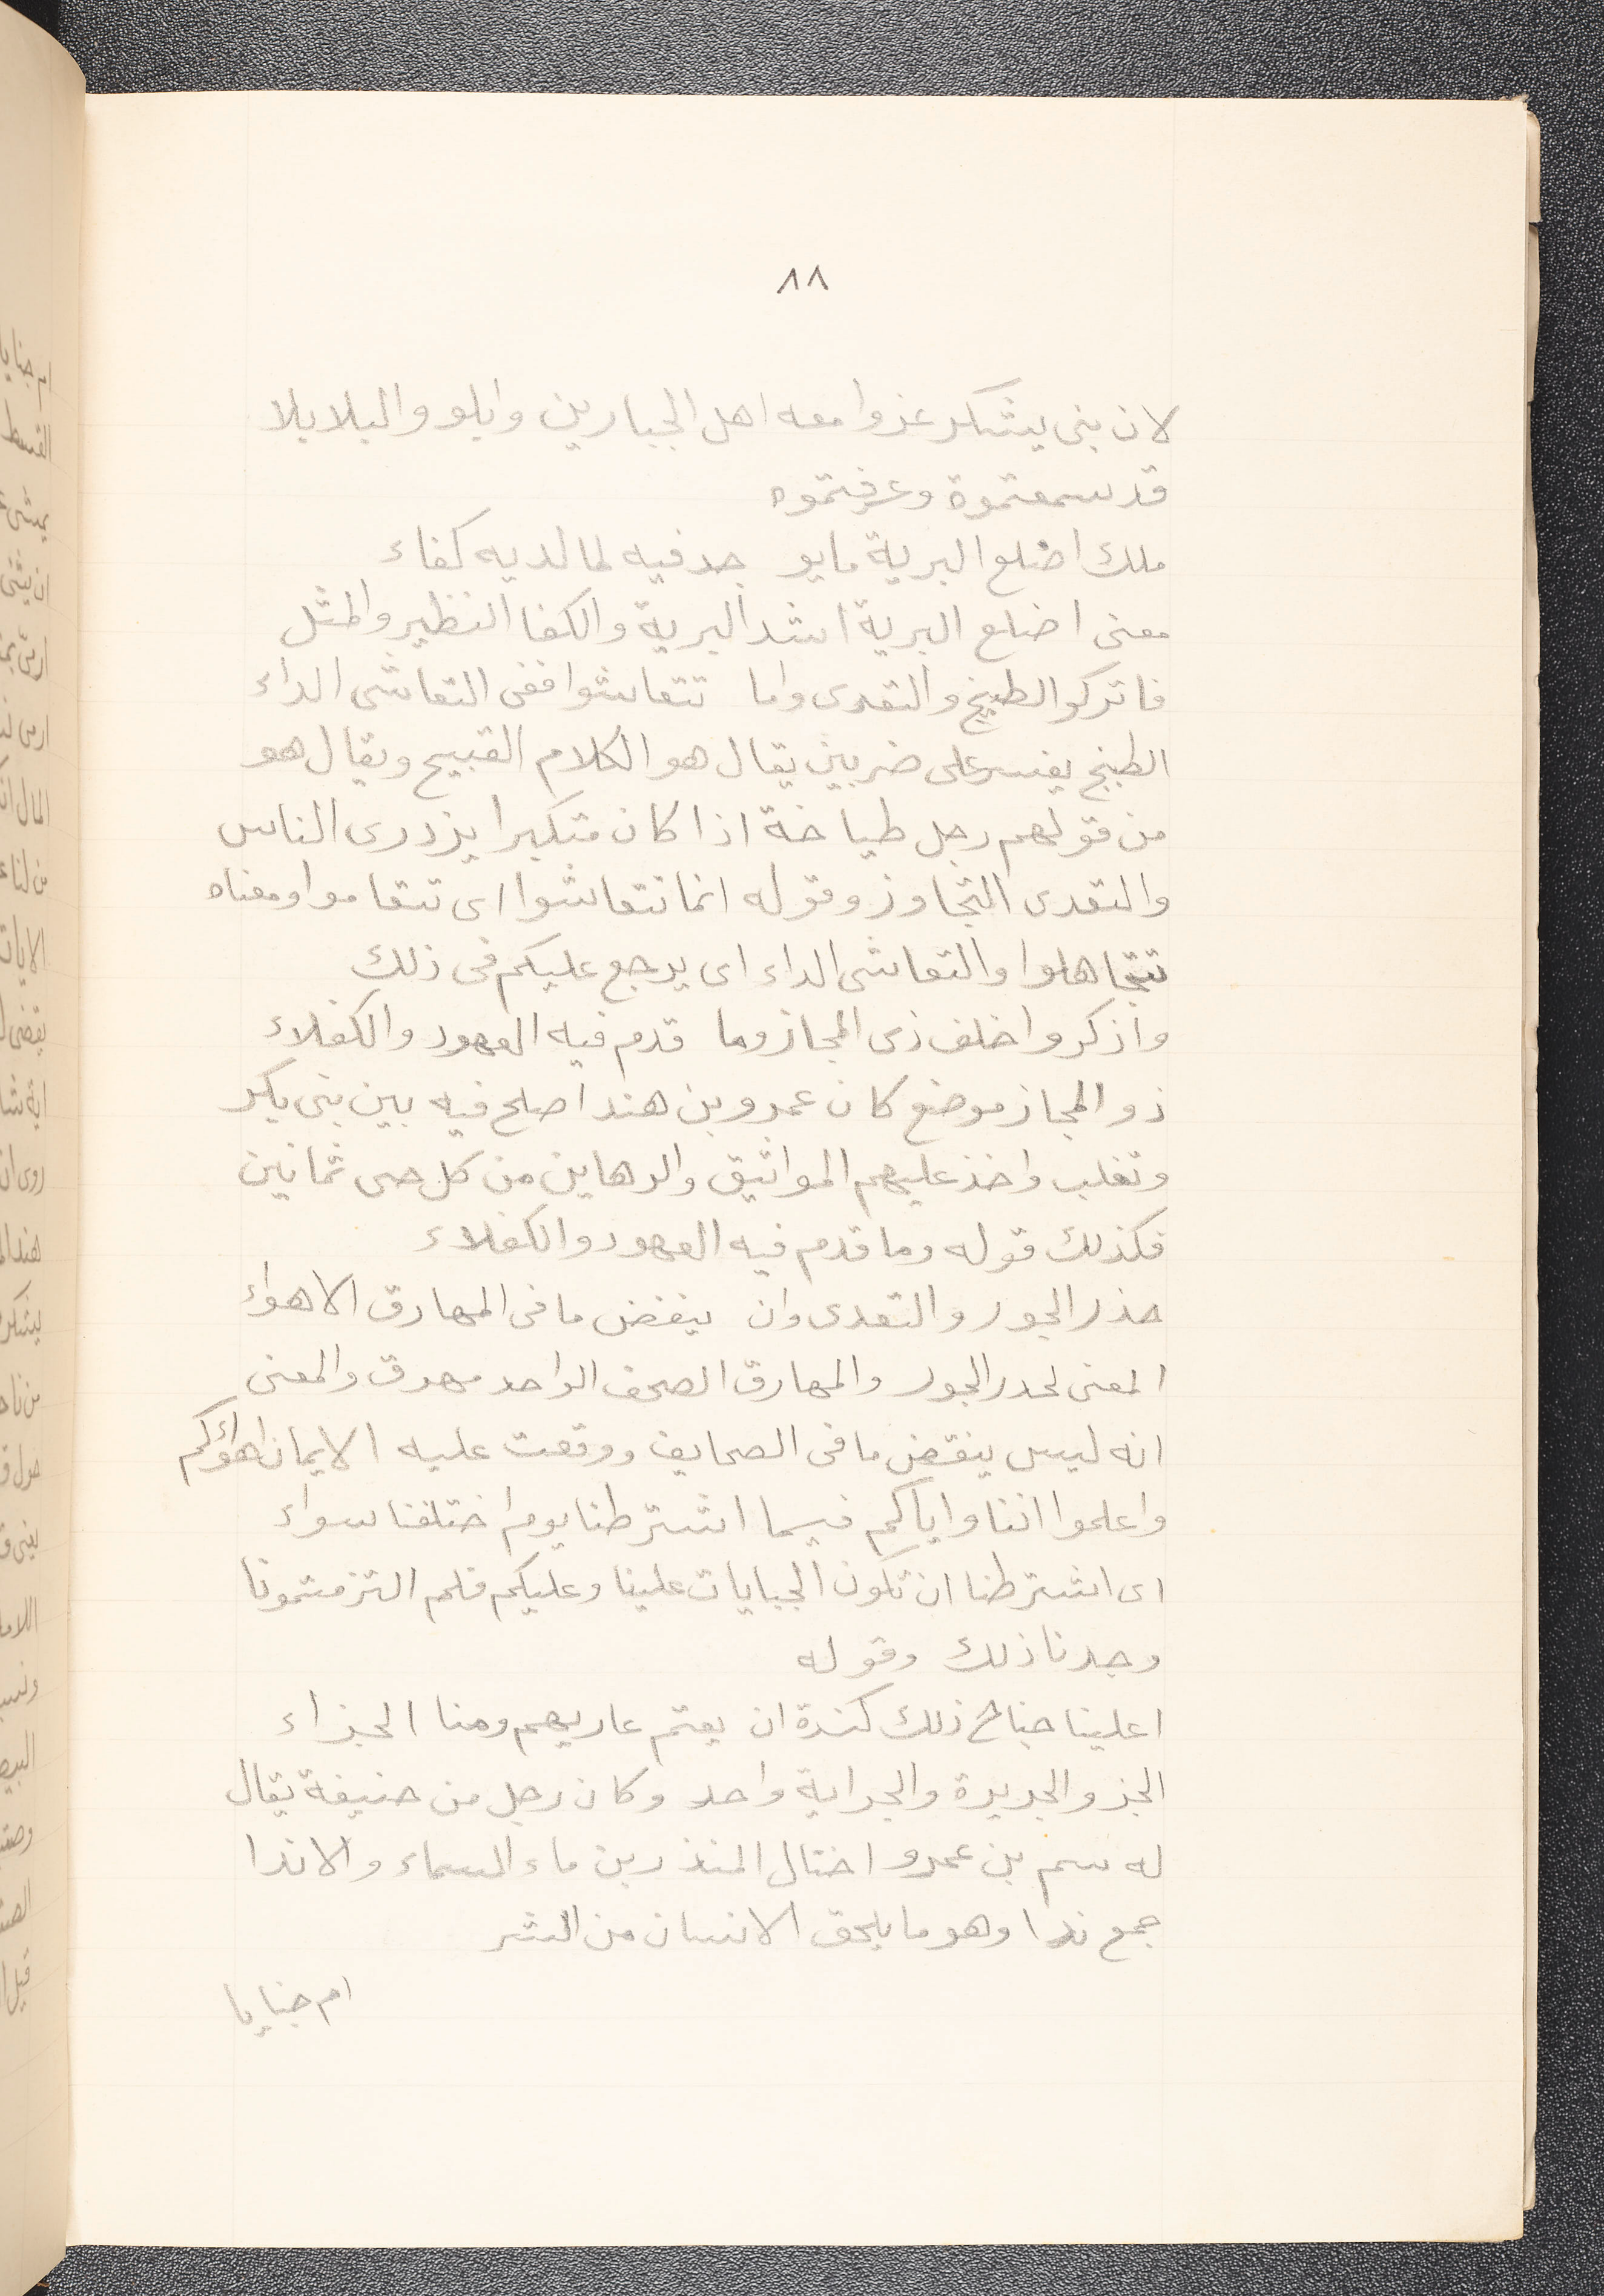 ٨٨
لان بنى يشكر غزوا معه اهل الجبارين وايلو والبلا بلا
قد سمعتموة وعرفتموه
ملك اضلع البرية مايو جد فيه لما لديه كفاء
معنى اضلع البرية اشد البرية والكفا النظير والمثل
فاتركوا لطبيخ والتعدى واما تتعاشوا ففى التعاشى الداء
الطبنج يفسر على ضربين يقال هو الكلام القبيح ويقال هو
من قولهم رجل طباخة اذا كان متكبرا يزدرى الناس
والتعدى التجاوز وقوله انما تتعاشوا اى تتعاموا ومعناه
تتجاهلوا والتعاشى الداء اى يرجع عليكم فى ذلك
واذكروا خلف ذى المجاز وما قدم فيه العهود والكفلاء
ذو المجاز موضع كان عمرو بن هند اصلح فيه بين بنى بكر
وتغلب واخذ عليهم المواثيق والرهاين من كل حى ثمانين
فكذلك قوله وما قدم فيه العهود والكفلاء
حذر الجور والتعدى وان ينغض ما فى المهارق الاهواء
المعنى لحدر الجور والمهارق الصحف الواحد مهرق والمعنى
انه ليس ينقض ما فى الصحايف ووقعت عليه الايمان اهوائكم
واعلموا اننا واياكم فيما اشترطنا يوم اختلفنا سواء
اى اشترطنا ان تكون الجبايات علينا وعليكم فلم التزمتمونا
وجدنا ذلك وقوله
اعلينا جناح ذلك كندة ان يعتم عاريهم ومنا الجزاء
الجز والجريرة والجراية واحد وكان رجل من حنيفة يقال
له سم بن عمرو اختال المنذر بن ماء السماء والاندا
جمع ندا وهو ما يلحق الانسان من الشر
ام جنايا